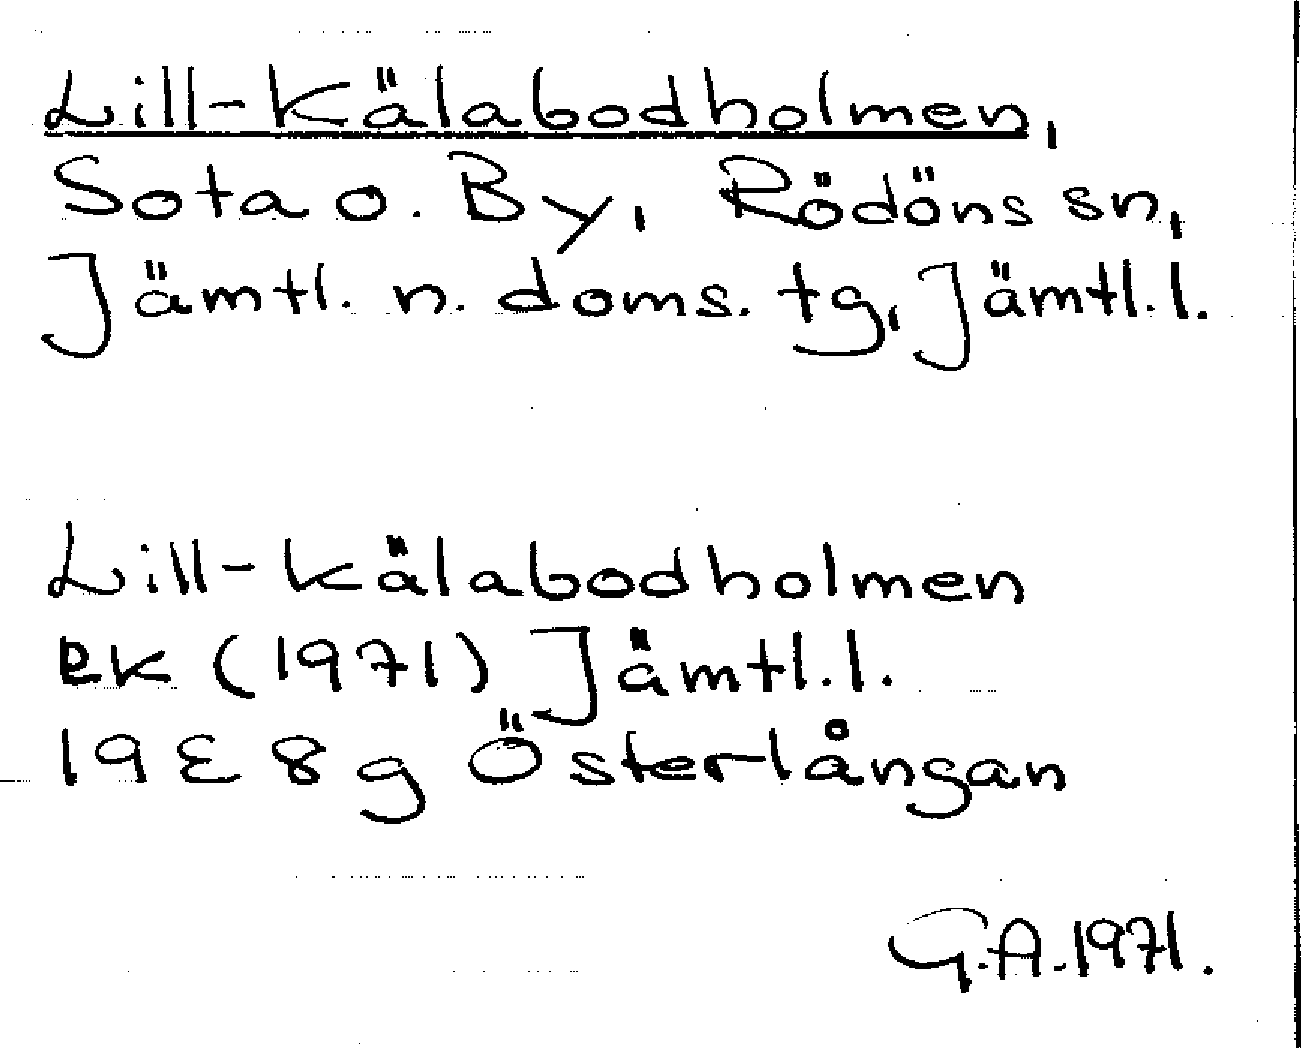 Lill-Kälabodholmen,
Sota o. By, Rödöns sn,
Jämtl. n. doms. tg, Jämtl. l.
Lill-kälabodholmen
ek (1971) Jämtl. l.
19E 8 g Österlångan
G.A. 1971.